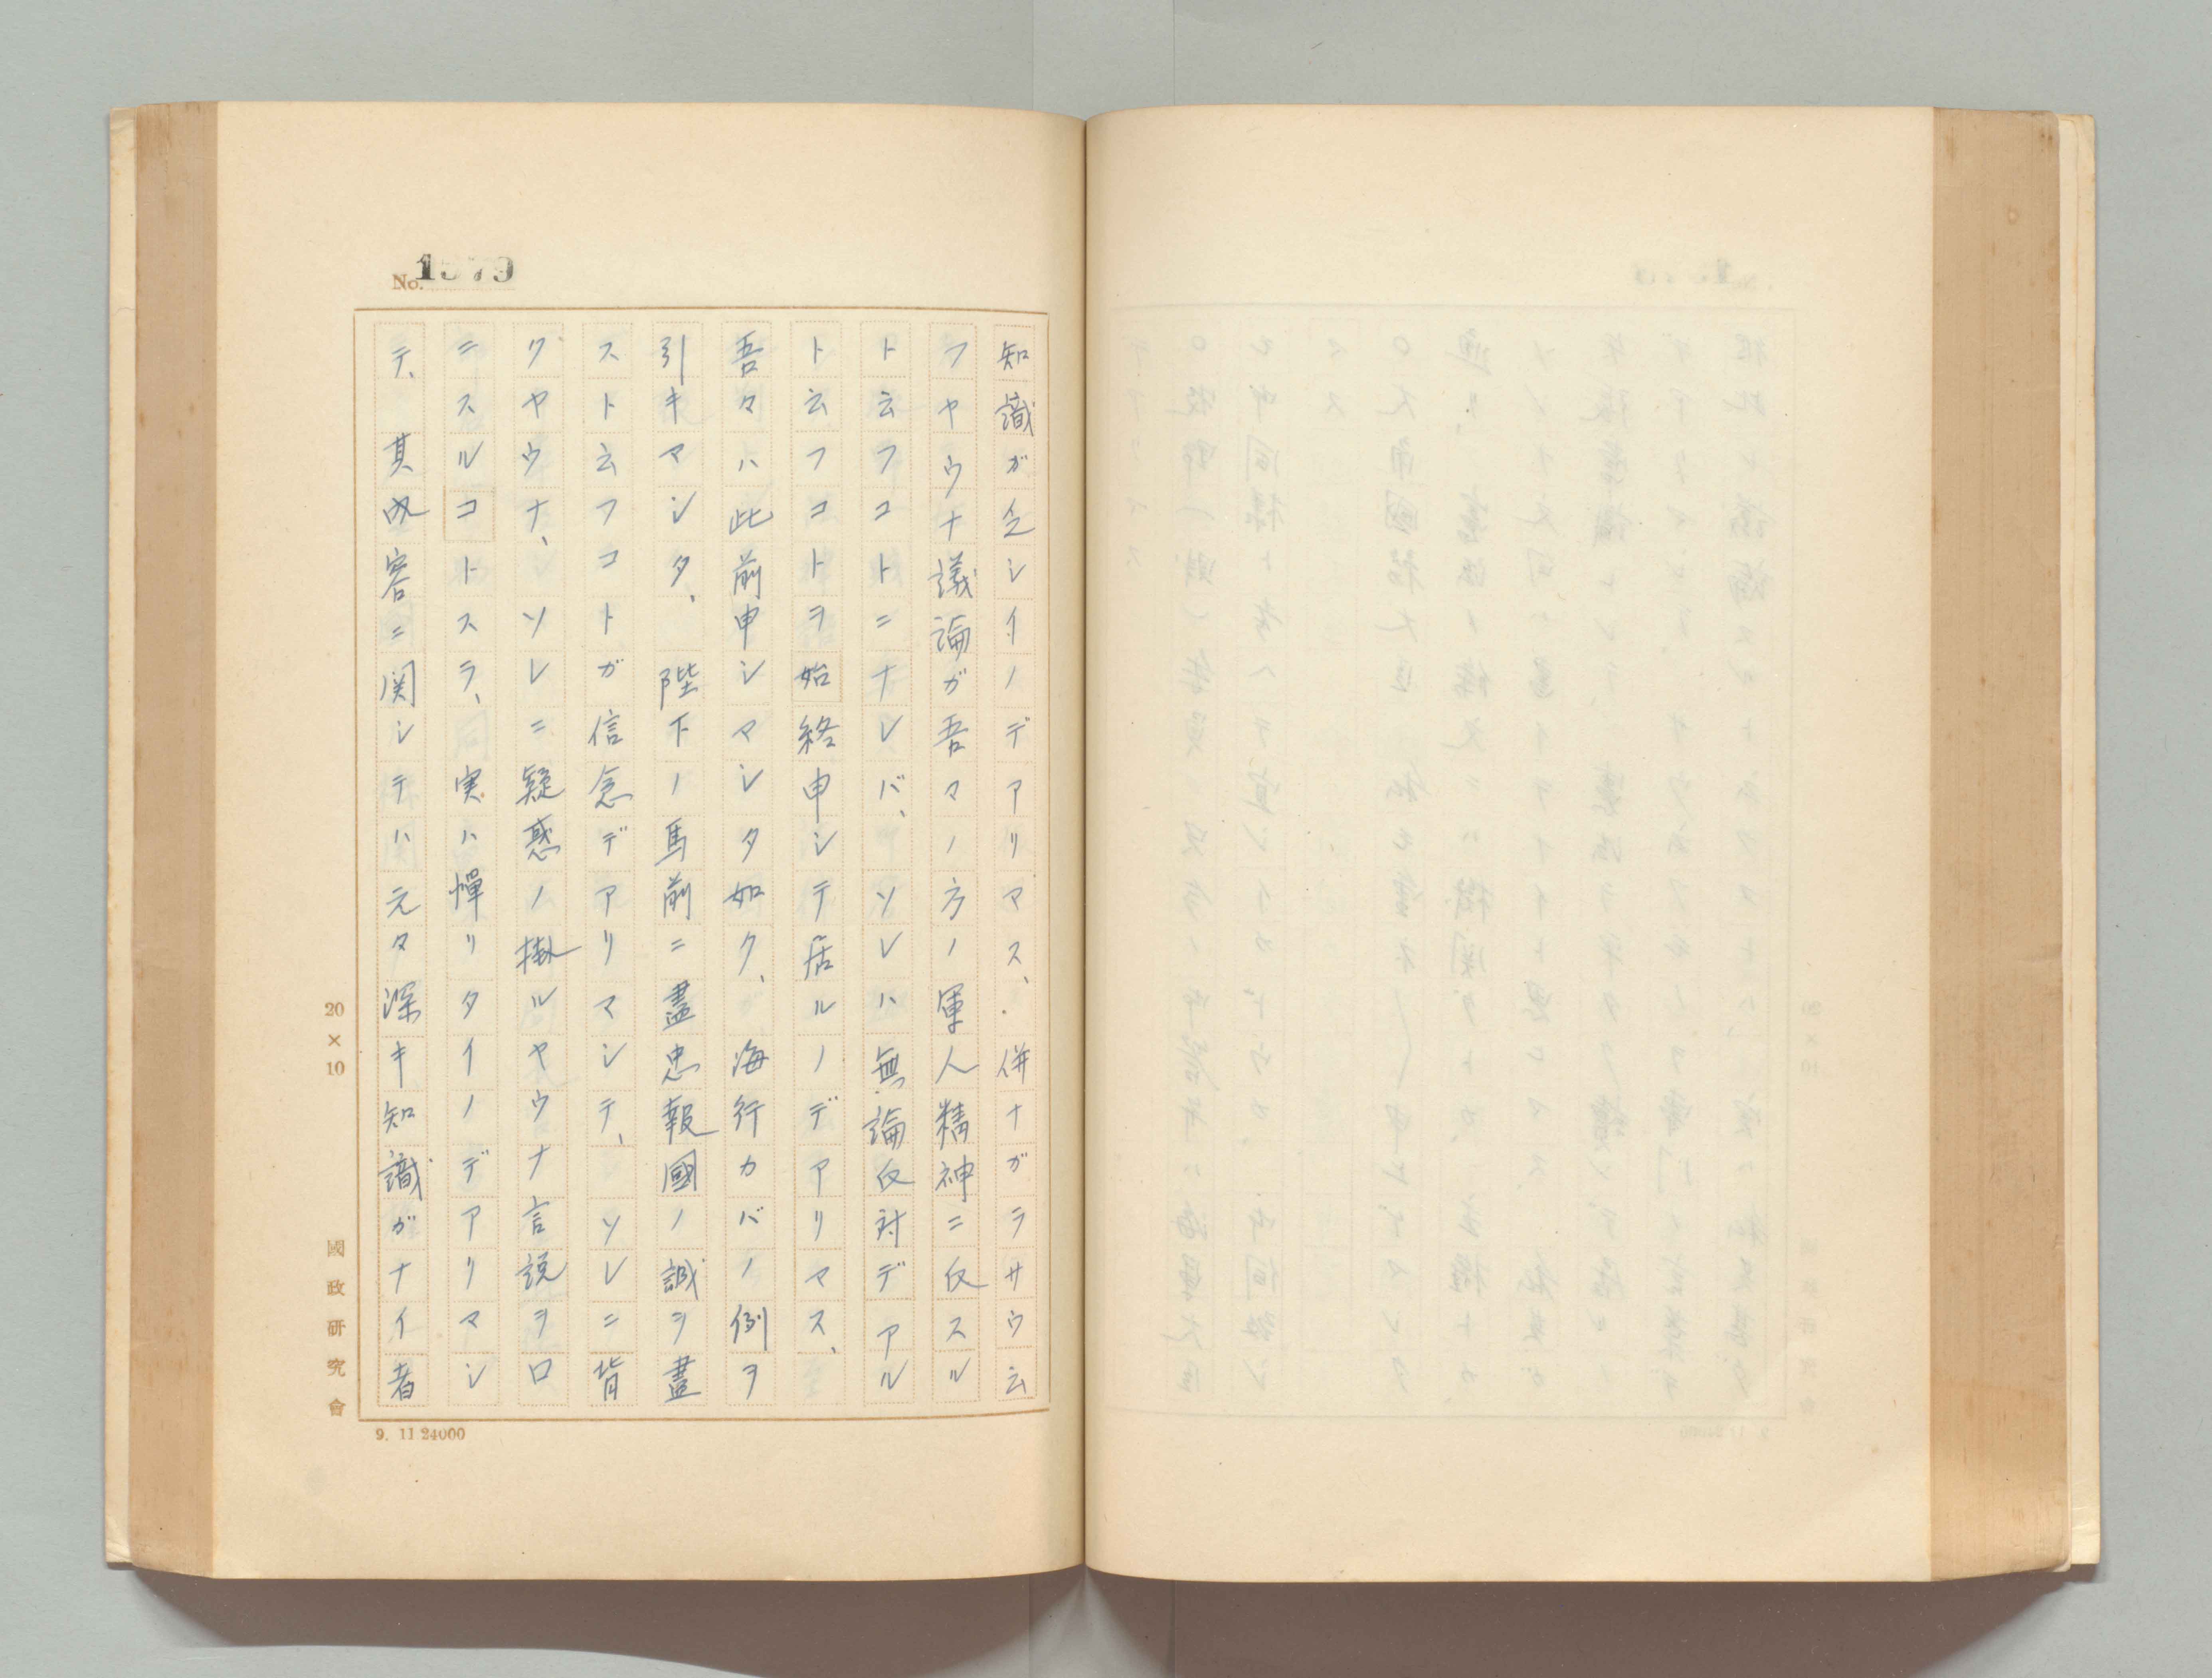 No. 1579
知識ガ乏シイノデアリマス、併ナガラサウ云
フヤウナ議論ガ吾々ノ方ノ軍人精神ニ反スル
ト云フコトニナレバ、ソレハ無論反対デアル
ト云フコトヲ始終申シテ居ルノデアリマス、
吾々ハ此前申シマシタ如ク、海行カバノ例ヲ
引キマシタ、陛下ノ馬前ニ盡忠報國ノ誠ヲ盡
ストムフコトガ信念デアリマシテ、ソレニ背
クヤウナ、ソレニ疑惑ノ掛ルヤウナ言説ヲ口
ニスルコトスラ、実ハ憚リタイノデアリマシ
テ、其内容ニ関シテハ元タ深キ知識ガナイ者
20×10
國政研究會
9. 11 24000